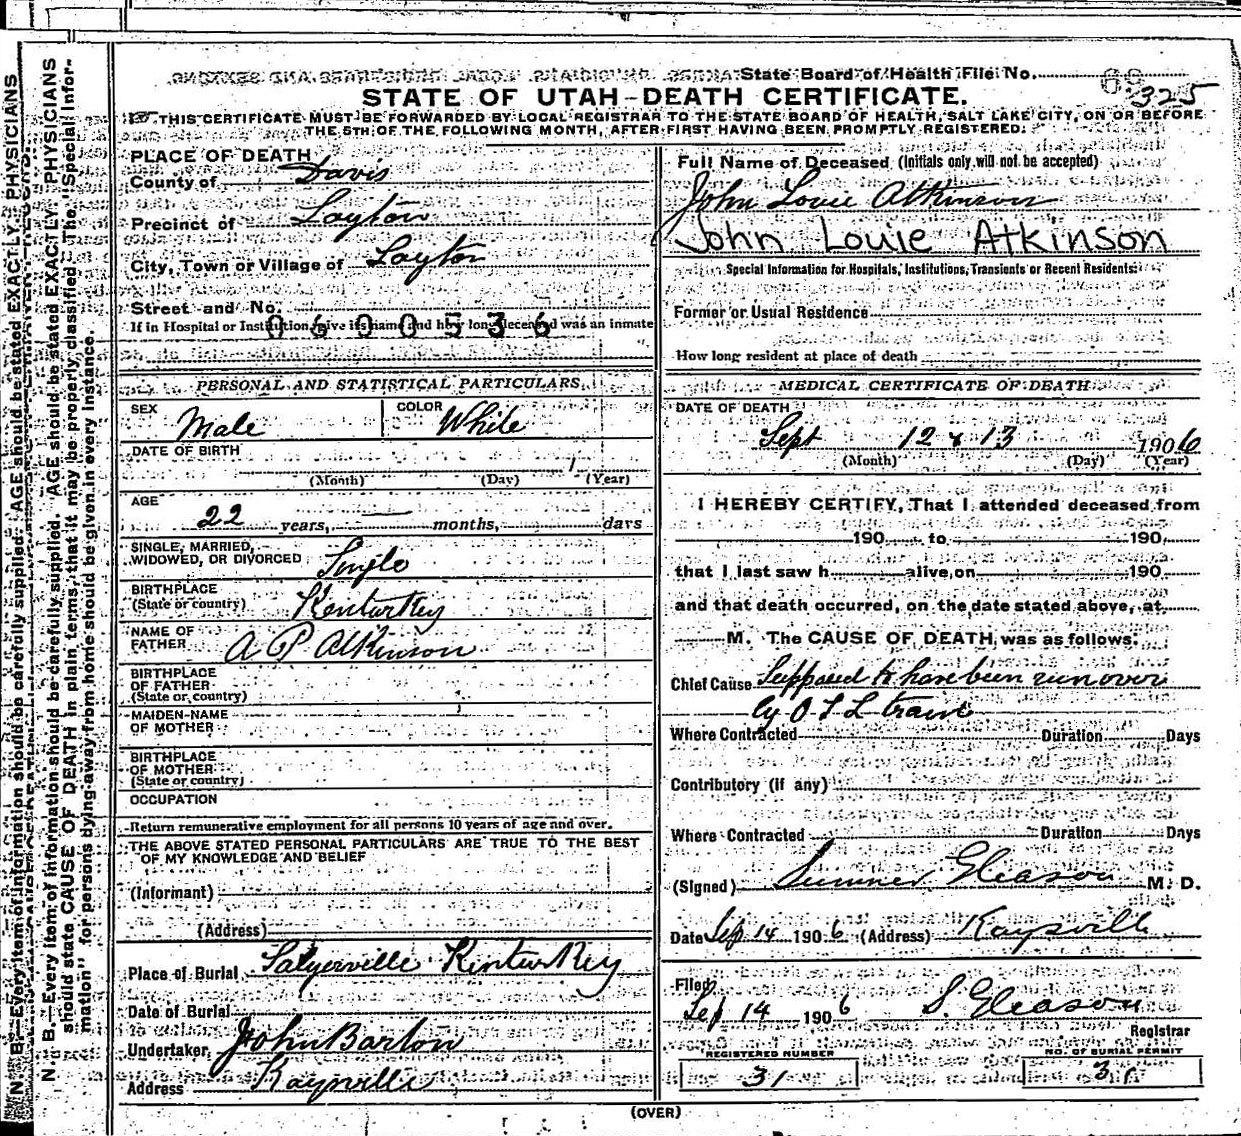 State Board of Health File No. 325
STATE OF UTAH—DEATH CERTIFICATE.
THIS CERTIFICATE MUST BE FORWARDED BY LOCAL REGISTRAR TO THE STATE BOARD OF HEALTH, SALT LAKE CITY, ON OR BEFORE
THE 5TH OF THE FOLLOWING MONTH, AFTER FIRST HAVING BEEN PROMPTLY REGISTERED.
PLACE OF DEATH
County of Davis
Precinct of Layton
City, Town or Village of Layton
Street and No.
If in Hospital or Institution, give its name and how long deceased was an inmate
0600536
PERSONAL AND STATISTICAL PARTICULARS.
SEX Male COLOR White
DATE OF BIRTH
(Month) (Day) (Year)
AGE
22 years, — months, days
SINGLE, MARRIED,
WIDOWED, OR DIVORCED Single
BIRTHPLACE
(State or country) Kentuckey
NAME OF
FATHER A P Atkinson
BIRTHPLACE
OF FATHER
(State or country)
MAIDEN-NAME
OF MOTHER
BIRTHPLACE
OF MOTHER
(State or country)
OCCUPATION
Return remunerative employment for all persons 10 years of age and over.
THE ABOVE STATED PERSONAL PARTICULARS ARE TRUE TO THE BEST
OF MY KNOWLEDGE AND BELIEF
(Informant)
(Address)
Place of Burial Salyerville Kentuckey
Date of Burial
Undertaker, John Barton
Address Kaysville
Full Name of Deceased (Initials only will not be accepted)
John Louie Atkinson
John Louie Atkinson
Special Information for Hospitals, Institutions, Transients or Recent Residents:
Former or Usual Residence
How long resident at place of death
MEDICAL CERTIFICATE OF DEATH
DATE OF DEATH
Sept 12 & 13 1906
(Month) (Day) (Year)
I HEREBY CERTIFY, That I attended deceased from
190 to 190
that I last saw h alive on 190
and that death occurred, on the date stated above, at
M. The CAUSE OF DEATH was as follows:
Chief Cause Supposed to have been run over
by O S L train
Where Contracted Duration Days
Contributory (if any)
Where Contracted Duration Days
(Signed) Sumner Gleason M. D.
Date Sep 14 1906 (Address) Kaysville
Filed
Sep 14 1906 S. Gleason
Registrar
REGISTERED NUMBER NO. OF BURIAL PERMIT
31 31
(OVER)
N. B.—Every item of information should be carefully supplied. AGE should be stated EXACTLY. PHYSICIANS
should state CAUSE OF DEATH in plain terms, that it may be properly classified. The "Special Infor-
mation" for persons dying away from home should be given in every instance.